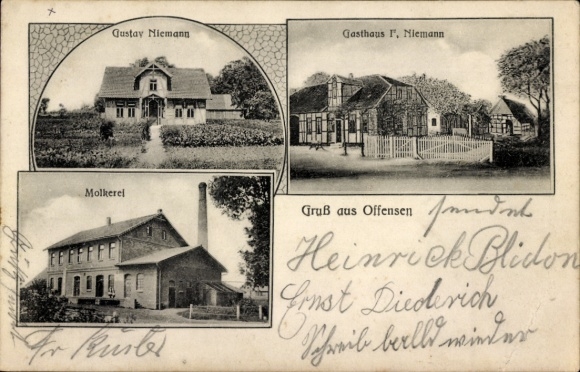 Gustav Niemann
Gasthaus F. Niemann
Molkerei
Gruß aus Offensen
sendet
Heinrick Blidon
Ernst Diederich
Schreib balld wieder
Fr Küster